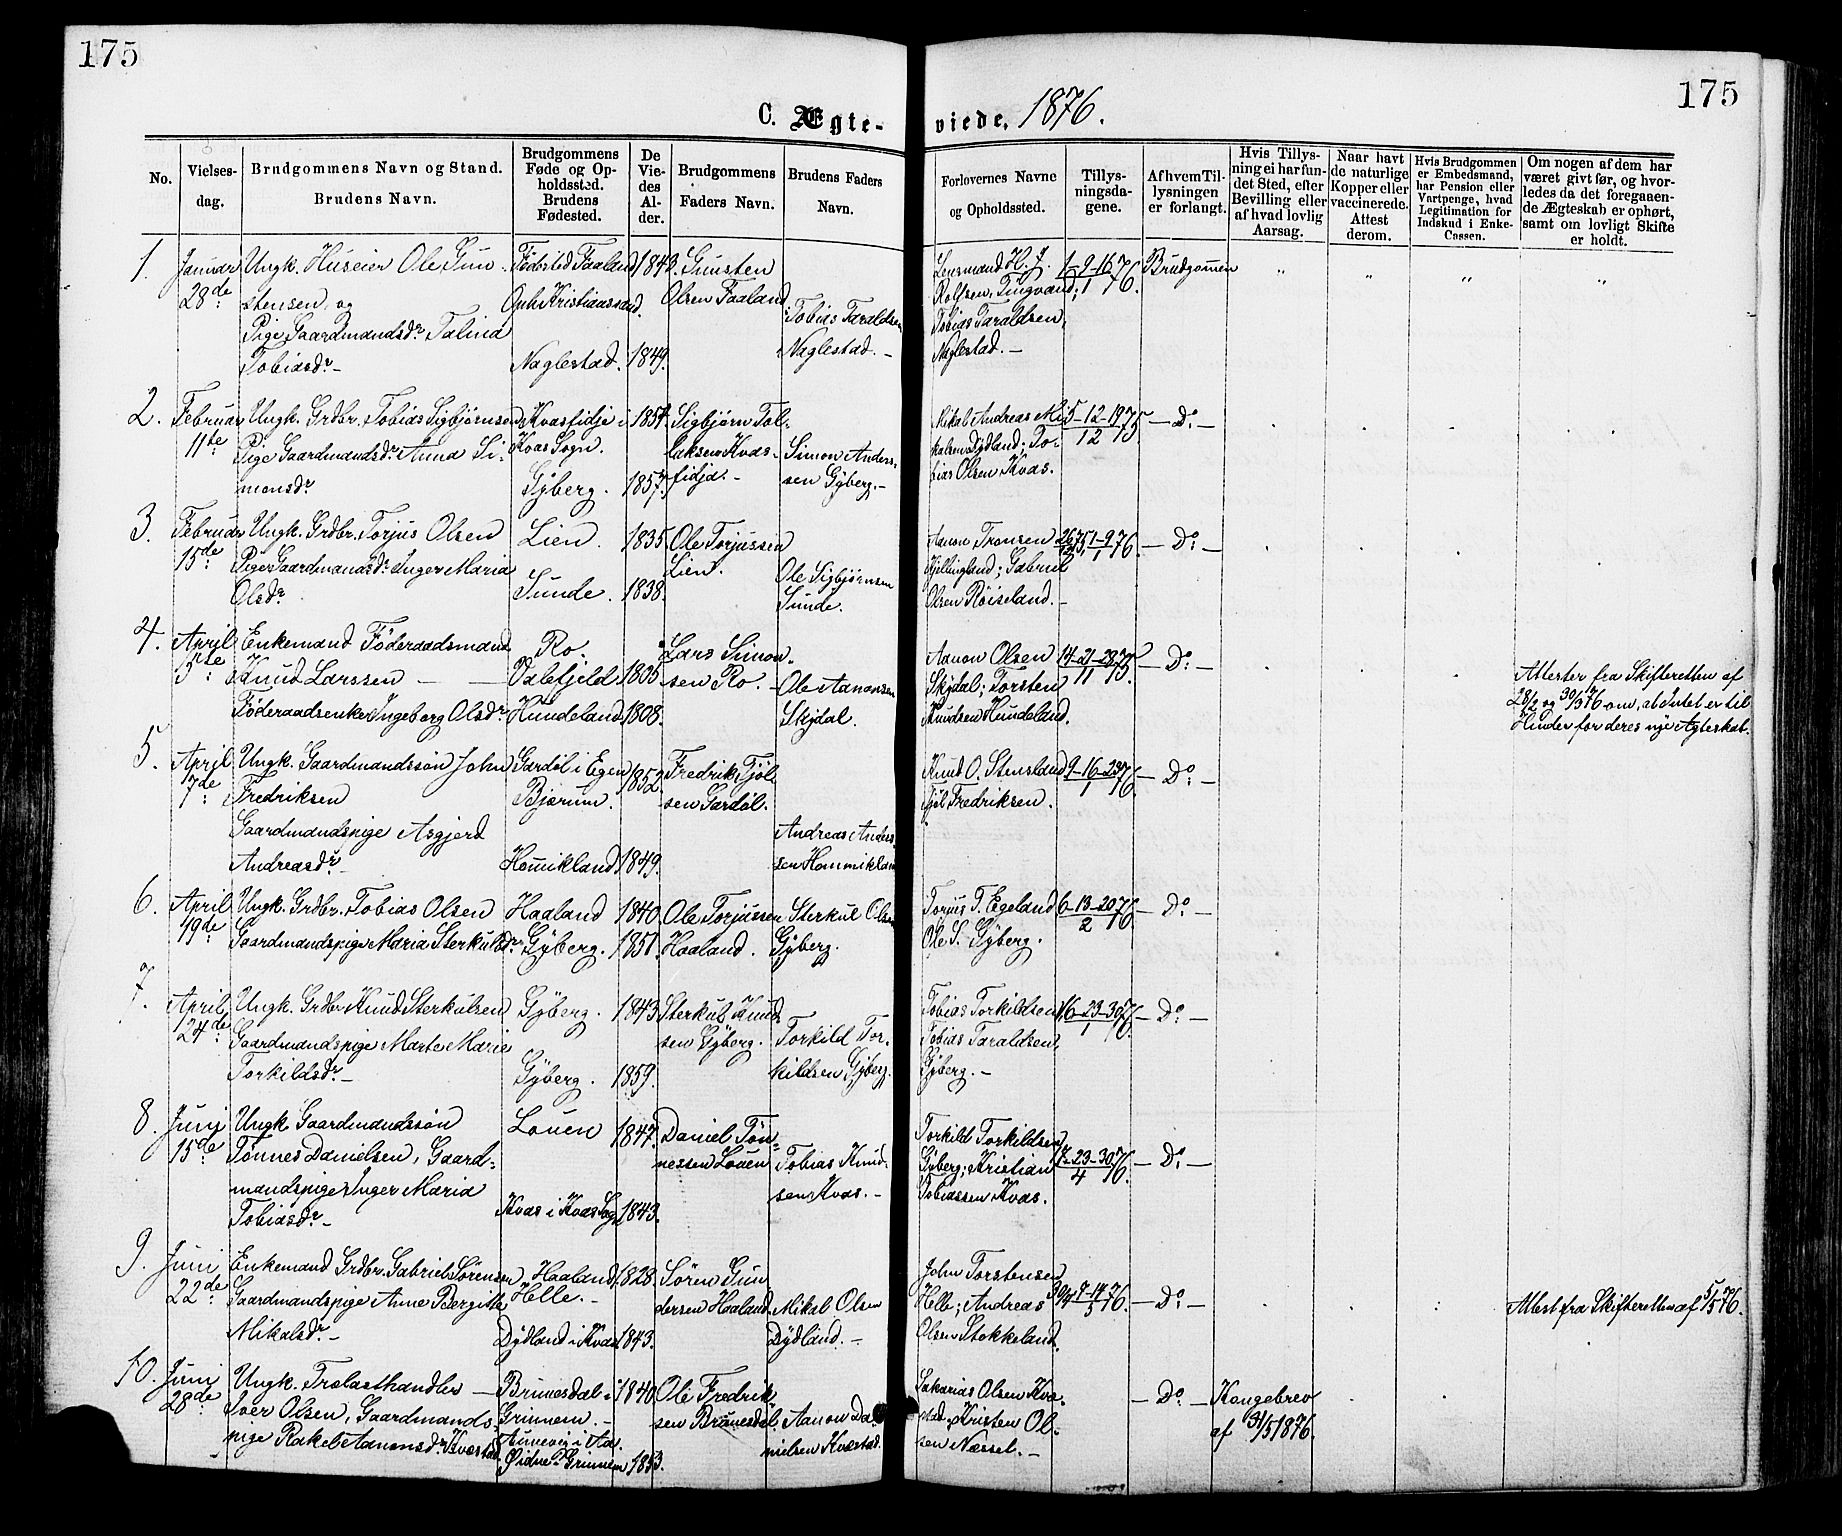 175
175
C. Ægte-
viede, 1876.
No.
Vielses-
dag.
Brudgommens Navn og Stand.
Brudens Navn.
Brudgommens
Føde og Op-
holdssted.
Brudens
Fødested.
De
Vie-
des
Al-
der.
Brudgommens
Faders Navn.
Brudens Faders
Navn.
Forlovernes Navne
og Opholdssted.
Tillys-
ningsda-
gene.
Af hvem Til-
lysningen
er forlangt.
Hvis Tillys-
ning ei har fun-
det Sted, efter
Bevilling eller
af hvad lovlig
Aarsag.
Naar havt
de naturlige
Kopper eller
vaccinerede.
Attest
derom.
Hvis Brudgommen
er Embedsmand,
har Pension eller
Vartpenge, hvad
Legitimation for
Indskud i Enke-
Cassen.
Om nogen af dem har
været givt før, og hvor-
ledes da det foregaaen-
de Ægteskab er ophørt,
samt om lovligt Skifte
er holdt.
1.
Januar
28de
Ungk. Huseier Ole Gun-
stensen, og
Pige Gaardmandsdr. Talina
Tobiasdr. –
Födested Faaland
Oph. Kristianssand.
Naglestad.
1843.
1849.
Gunsten
Olsen Faaland
Tobias Taraldsen
Naglestad. –
Lensmand H. J.
Rolfsen, Tingvand;
Tobias Taraldsen,
Naglestad. –
1-9-16/1 76.
Brudgommen
2.
Februar
11te
Ungk. Grdbr. Tobias Sigbjørnsen
Pige Gaardmandsdr. Anna Si-
monsdr.
Kvasfidje i
Kvas Sogn.
Gÿberg.
1854.
1857.
Sigbjørn Tol-
laksen Kvas-
fidja. –
Simon Anders-
sen Gÿberg. –
Mikal Andreas Mi-
kalsen Dÿdland; To-
bias Olsen Kvas.
5-12-19/12 75
– Do: –
3.
Februar
15de
Ungk. Grdbr. Torjus Olsen
Pige Gaardmandsdr. Inger Maria
Olsdr.
Lien.
Sunde.
1835.
1838.
Ole Torjussen
Lien.
Ole Sigbjørnsen
Sunde.
Aanon Tronsen
Kjellingland; Gabriel
Olsen Røiseland. –
26/12 75, 1-9/1 76.
– Do: –
4.
April
5te
Enkemand Föderaadsmand
Knud Larssen –
Föderaadsenke Ingeborg Olsdr.
Ro.
Valefjeld
Hundeland
1805
1808.
Lars Simon-
sen Ro. –
Ole Aanonsen
Skjdal.
Aanon Olsen
Skjdal; Torsten
Knudsen Hundeland.
14-21-28/11 75.
– Do: –
Attester fra Skifteretten af
28/2 og 30/3 76 om, at Intet er til
Hinder for deres nye Ægteskab.
5.
April
7de
Ungk. Gaardmandssøn John
Fredriksen
Gaardmandspige Asgjerd
Andreasdr. –
Gardöl i Egen
Bjerum.
Homikland
1852.
1849.
Fredrik Tjöl-
sen Gardöl.
Andreas Anders-
sen Hommikland
Knud O. Stensland
Tjöl Fredriksen.
9-16-23/1 76.
– Do: –
6.
April
19de
Ungk. Grdbr. Tobias Olsen
Gaardmandspige Maria Sterkulsdr.
Haaland
Gÿberg.
1840.
1851.
Ole Torjussen
Haaland.
Sterkul Olsen
Gÿberg.
Torjus T. Egeland
Ole S. Gÿberg.
6-13-20/2 76.
– Do: –
7.
April
24de
Ungk. Grdbr. Knud Sterkulsen
Gaardmandspige Marte Marie
Torkildsdr. –
Gÿberg.
Gÿberg.
1843
1859.
Sterkul Knud-
sen Gÿberg.
Torkild Tor-
kildsen Gÿberg.
Tobias Torkildsen
Tobias Taraldsen,
Gÿberg. –
16-23-30/1 76.
– Do: –
8.
Juni
15de
Ungk. Gaardmandssön
Tønnes Danielsen, Gaard-
mandspige Inger Maria
Tobiasdr. –
Louen
Kvas i Kvas Sogn
1847.
1843.
Daniel Tøn-
nessen Louen
Tobias Knud-
sen Kvas. –
Torkild Torkildsen
Gÿberg; Kristian
Tobiassen Kvas.
– Do: –
9.
Juni
22de
Enkemand Grdbr. Gabriel Sörensen
Gaardmandspige Anne Bergitte
Mikalsdr. –
Haaland,
Helle. –
Dÿdland i Kvas
1828.
1843.
Sören Gun-
dersen Haaland.
Mikal Olsen
Dÿdland. –
John Torstensen
Helle; Andreas
Olsen Stokkeland.
30/4 7-14/5 76.
– Do: –
Attest fra Skifteretten af 5/5 76.
10.
Juni
28de
Ungk. Trælasthandler –
Iver Olsen, Gaardmands-
pige Rakel Aanonsdr. Kvæstad
Brunesdal i
Grinnem. –
Aunevig i Aa.
Øidne Grinnem
1840
1853.
Ole Fredrik-
sen Brunesdal.
Aanon Da-
nielsen Kvæstad.
Sakarias Olsen Kvæ-
stad, Kristen Ol-
sen Næssel. –
– Do: –
Kongebrev
af 31/5 1876.